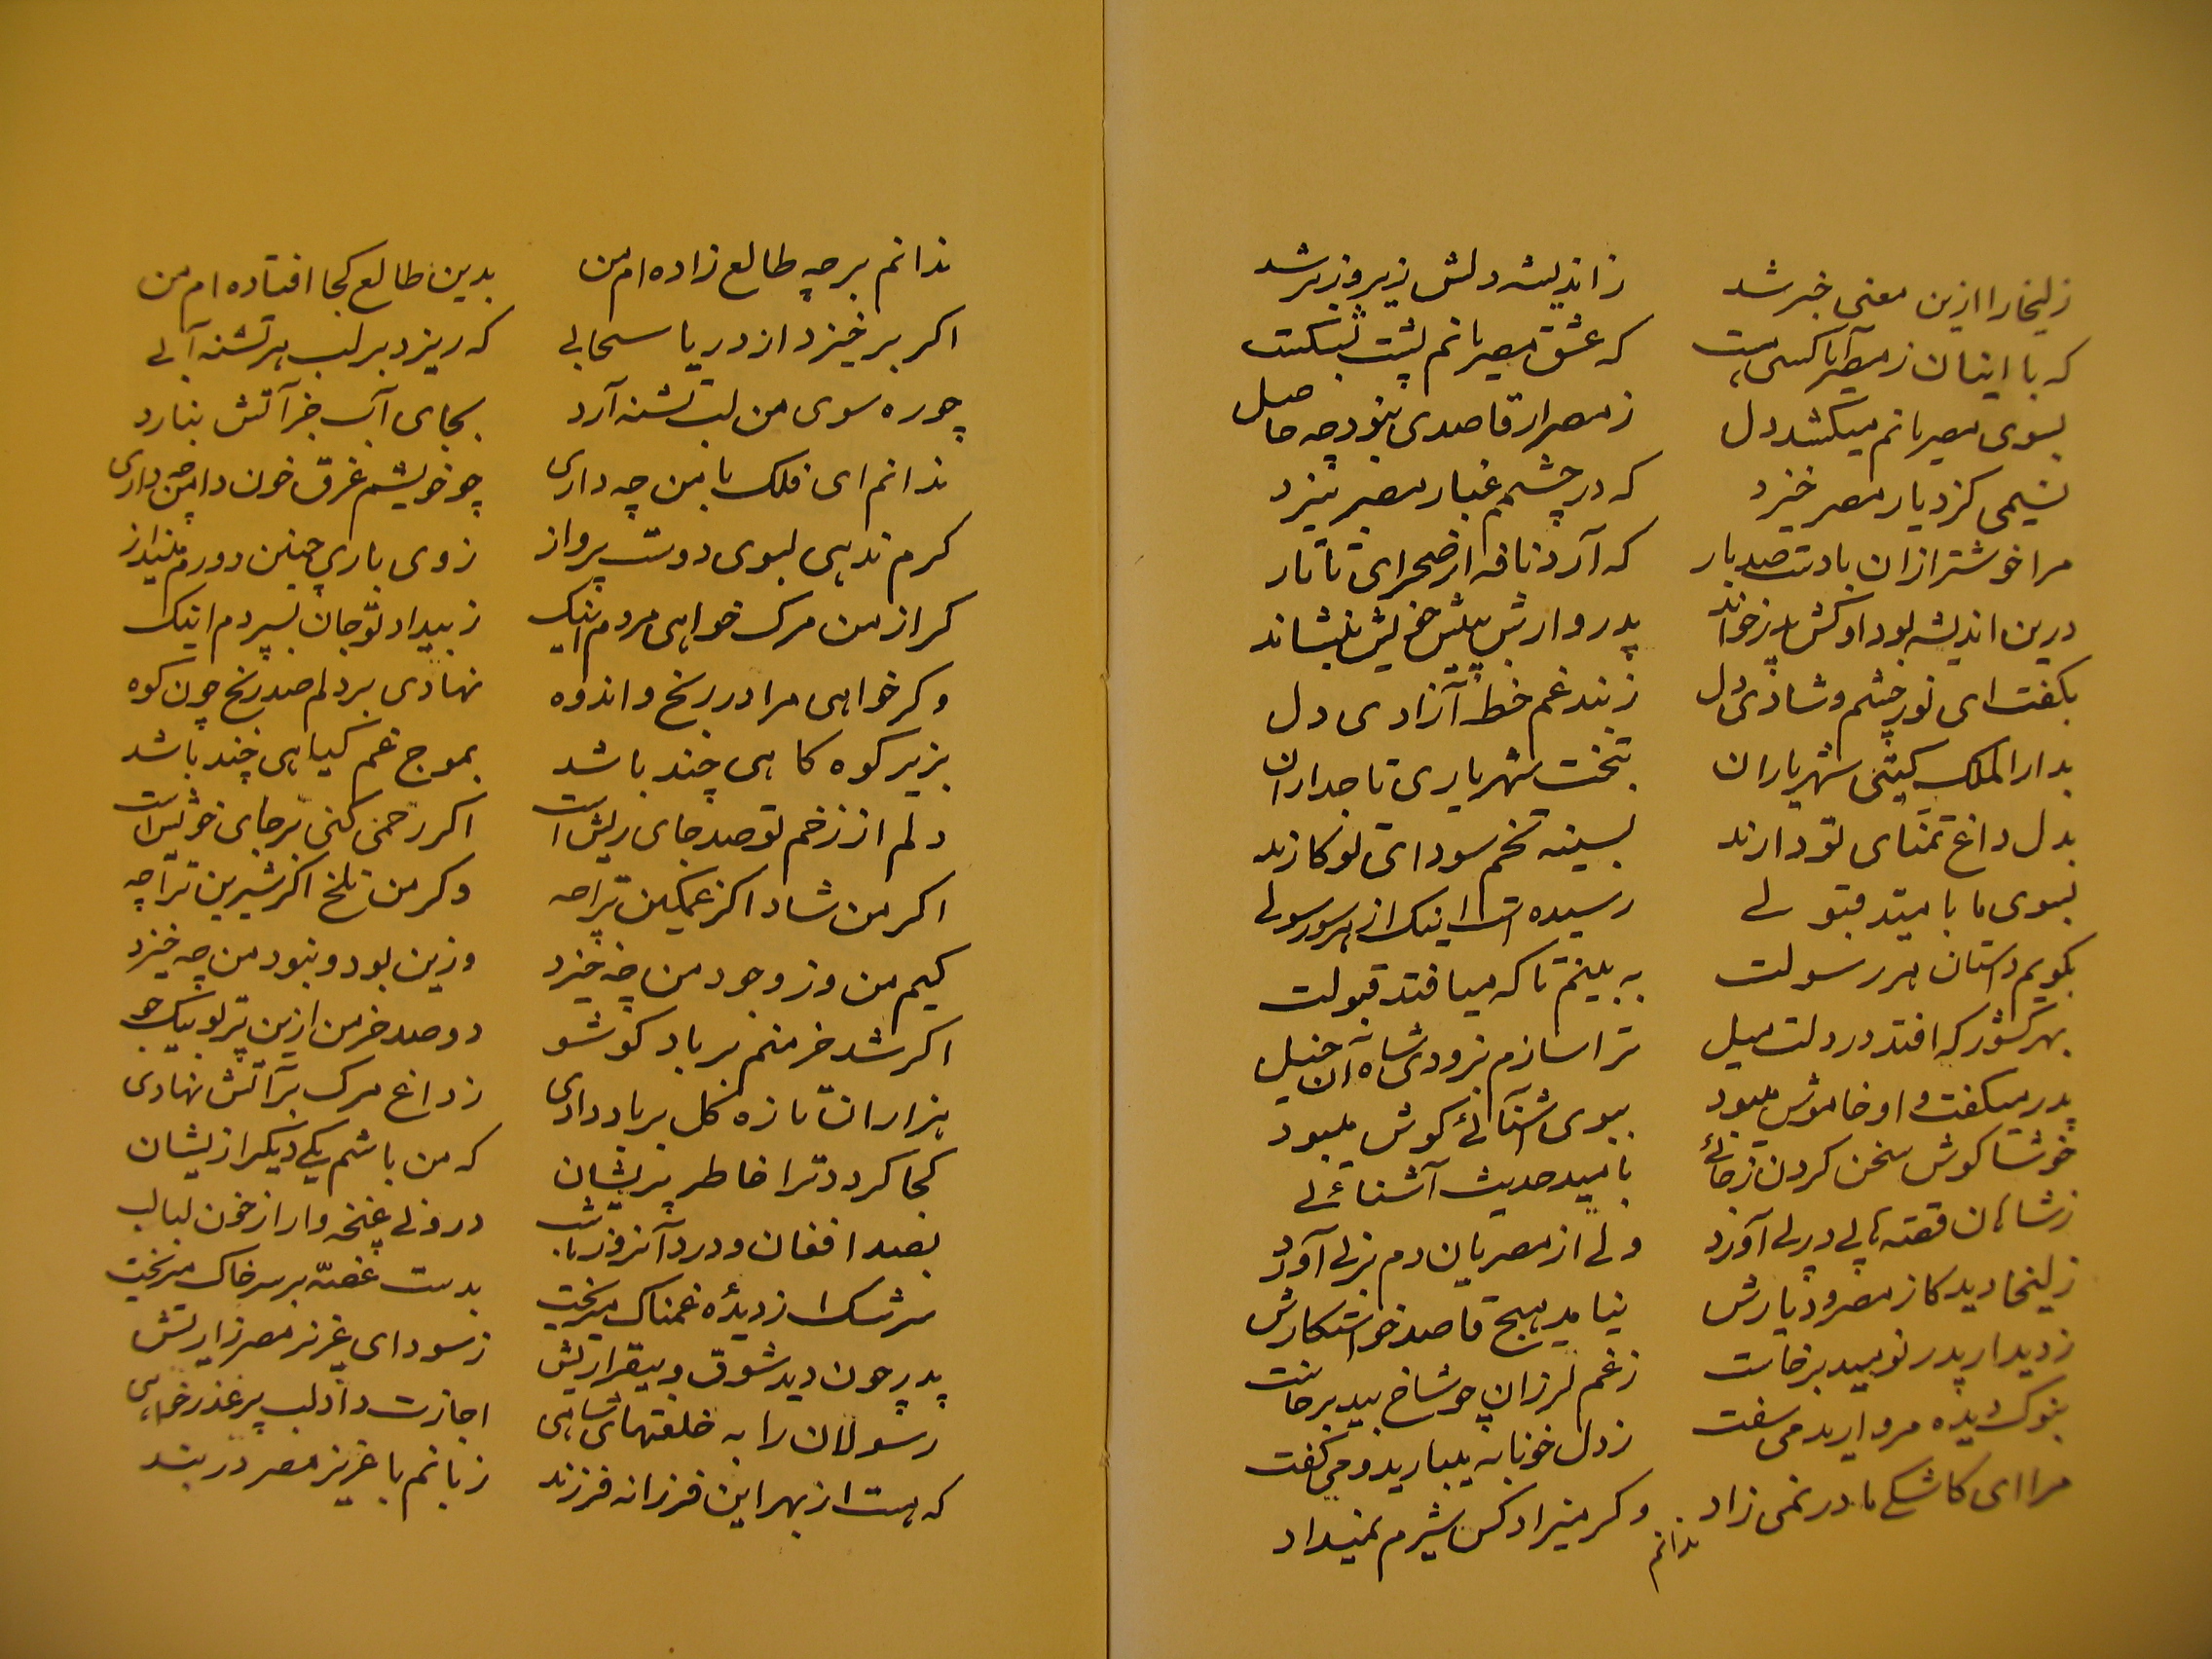 زلیخا را ازین معنی خبر شد زاندیشه دلش زیر و زبر شد
که با اینان ز مصر آیا کسی هست که عشق مصریانم پشت بشکست
بسوی مصریانم میکشد دل ز مصر ار قاصدی نبود چه حاصل
نسیمی کز دیار مصر خیزد که در چشمم غبار مصر بیزد
مرا خوشتر ازان بادست صد بار که آرد نافه از صحرای تاتار
درین اندیشه بود او کش پدر خواند پدروارش به پیش خویش بنشاند
بکفت ای نور چشم و شادی دل ز بند غم خط آزادی دل
بدار الملک کیتی شهریاران بتخت شهریاری تاجداران
بدل داغ تمنای تو دارند بسینه تخم سودای تو کارند
بسوی ما بامید قبولی رسیده است اینک از هر سو رسولی
بکویم داستان هر رسولت به بینم تا که می افتد قبولت
بهر کشور که افتد در دلت میل ترا سازم بزودی شاه آن خیل
پدر میکفت و او خاموش میبود ببوی آشنائی کوش میبود
خوشا کوش سخن کردن ز جائی بامید حدیث آشنائی
ز شاهان قصه ها پی در پی آورد ولی از مصریان دم بر نی آورد
زلیخا دید کز مصر و دیارش نیامد هیچ قاصد خواستکارش
ز دیدار پدر نومید برخاست ز غم لرزان چو شاخ بید برخاست
بنوک دیده مروارید می سفت ز دل خونابه میبارید و می کفت
مرا ای کاشکی مادر نمی زاد وکر میزاد کس شیرم نمیداد
ندانم
ندانم بر چه طالع زاده ام من بدین طالع کجا افتاده ام من
اکر برخیزد از دریا سحابی که ریزد بر لب هر تشنه آبی
چو ره سوی من لب تشنه آرد بجای آب جز آتش نبارد
ندانم ای فلک با من چه داری چو خویشم غرق خون دامن چه داری
کرم ندهی بسوی دوست پرواز ز وی باری چنین دورم مینداز
کر از من مرک خواهی مردم اینک ز بیداد تو جان بسپردم اینک
وکر خواهی مرا در رنج و اندوه نهادی بر دلم صد رنج چون کوه
بزیر کوه کاهی چند باشد بموج غم کیاهی چند باشد
دلم از زخم تو صد جای ریش است اکر رحمی کنی بر جای خویش است
اکر من شاد اکر غمکین ترا چه وکر من تلخ اکر شیرین ترا چه
کیم من وز وجود من چه خیزد وزین بود و نبود من چه خیزد
اکر شد خرمنم بر باد کو شو دو صد خرمن ازین بر تو بیک جو
هزاران تازه کل بر باد دادی ز داغ مرک بر آتش نهادی
کجا کردد ترا خاطر پریشان که من باشم یکی دیکر ازیشان
بصد افغان و درد آنروز تا شب درونی غنچه وار از خون لبالب
سرشک از دیدۀ غمناک میریخت بدست غصه بر سر خاک میریخت
پدر چون دید شوق و بیقراریش ز سودای عزیز مصر زاریش
رسولان را به خلعتهای شاهی اجازت داد لب پر عذر خواهی
که هست از بهر این فرزانه فرزند زبانم با عزیز مصر در بند